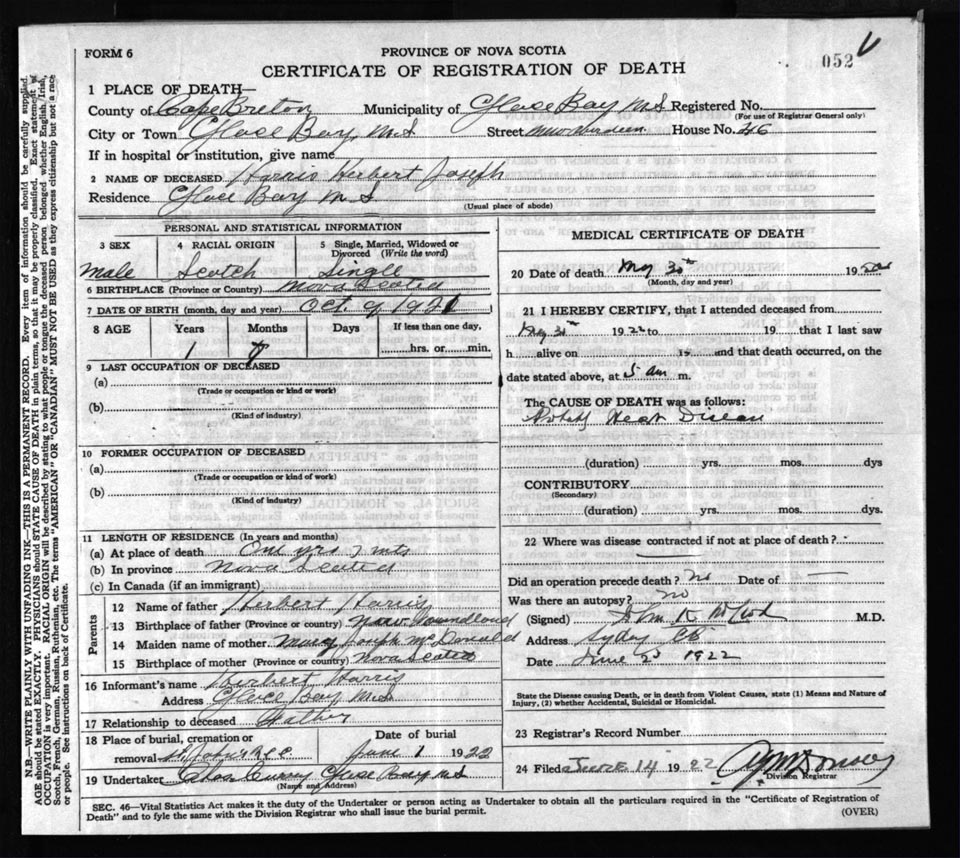 FORM 6
PROVINCE OF NOVA SCOTIA
052
CERTIFICATE OF REGISTRATION OF DEATH
1 PLACE OF DEATH—
County of Cape Breton Municipality of Glace Bay N.S Registered No.
(For use of Registrar General only)
City or Town Glace Bay N.S Street New Aberdeen. House No. 46
If in hospital or institution, give name
2 NAME OF DECEASED Harris Herbert Joseph
Residence Glace Bay N S
(Usual place of abode)
PERSONAL AND STATISTICAL INFORMATION
3 SEX 4 RACIAL ORIGIN 5 Single, Married, Widowed or Divorced (Write the word)
Male Scotch Single
6 BIRTHPLACE (Province or Country) Nova Scotia
7 DATE OF BIRTH (month, day and year) Oct. 9, 1921
8 AGE Years Months Days If less than one day,
1 7 hrs. or min.
9 LAST OCCUPATION OF DECEASED
(a)
(Trade or occupation or kind or work)
(b)
(Kind of industry)
10 FORMER OCCUPATION OF DECEASED
(a)
(Trade or occupation or kind of work)
(b)
(Kind of industry)
11 LENGTH OF RESIDENCE (In years and months)
(a) At place of death One yrs 7 mts
(b) In province Nova Scotia
(c) In Canada (if an immigrant)
Parents
12 Name of father Herbert Harris
13 Birthplace of father (Province or country) Newfoundland
14 Maiden name of mother Mary Joseph McDonald
15 Birthplace of mother (Province or country) Nova Scotia
16 Informant's name Herbert Harris
Address Glace Bay N.S
17 Relationship to deceased Father
18 Place of burial, cremation or Date of burial
removal St. John's June 1 1922
19 Undertaker Curry Glace Bay N S
(Name and Address)
MEDICAL CERTIFICATE OF DEATH
20 Date of death May 30th 192
(Month, day and year)
21 I HEREBY CERTIFY, that I attended deceased from
May 30th 1922 to 19 that I last saw
h alive on 19 and that death occurred, on the
date stated above, at 5 am m.
The CAUSE OF DEATH was as follows:
Probably Heart Disease
(duration) yrs. mos. dys
CONTRIBUTORY
(Secondary)
(duration) yrs. mos. dys.
22 Where was disease contracted if not at place of death?
Did an operation precede death? no Date of —
Was there an autopsy? no
(Signed) M.D.
Address Sydney CB
Date June 1922
State the Disease causing Death, or in death from Violent Causes, state (1) Means and Nature of
Injury, (2) whether Accidental, Suicidal or Homicidal.
23 Registrar's Record Number
24 Filed JUNE 14 1922
Division Registrar
SEC. 46—Vital Statistics Act makes it the duty of the Undertaker or person acting as Undertaker to obtain all the particulars required in the "Certificate of Registration of
Death" and to fyle the same with the Division Registrar who shall issue the burial permit.
(OVER)
N.B.—WRITE PLAINLY WITH UNFADING INK—THIS IS A PERMANENT RECORD. Every item of information should be carefully supplied.
AGE should be stated EXACTLY. PHYSICIANS should STATE CAUSE OF DEATH in plain terms, so that it may be properly classified. Exact statement of
OCCUPATION is very important. RACIAL ORIGIN will be described by stating to what people or tongue the deceased person belonged whether English, Irish,
Scotch, French, German, Russian, Ruthenian, etc. The terms "AMERICAN" OR "CANADIAN" MUST NOT BE USED as they express citizenship but not a race
or people. See instructions on back of Certificate.